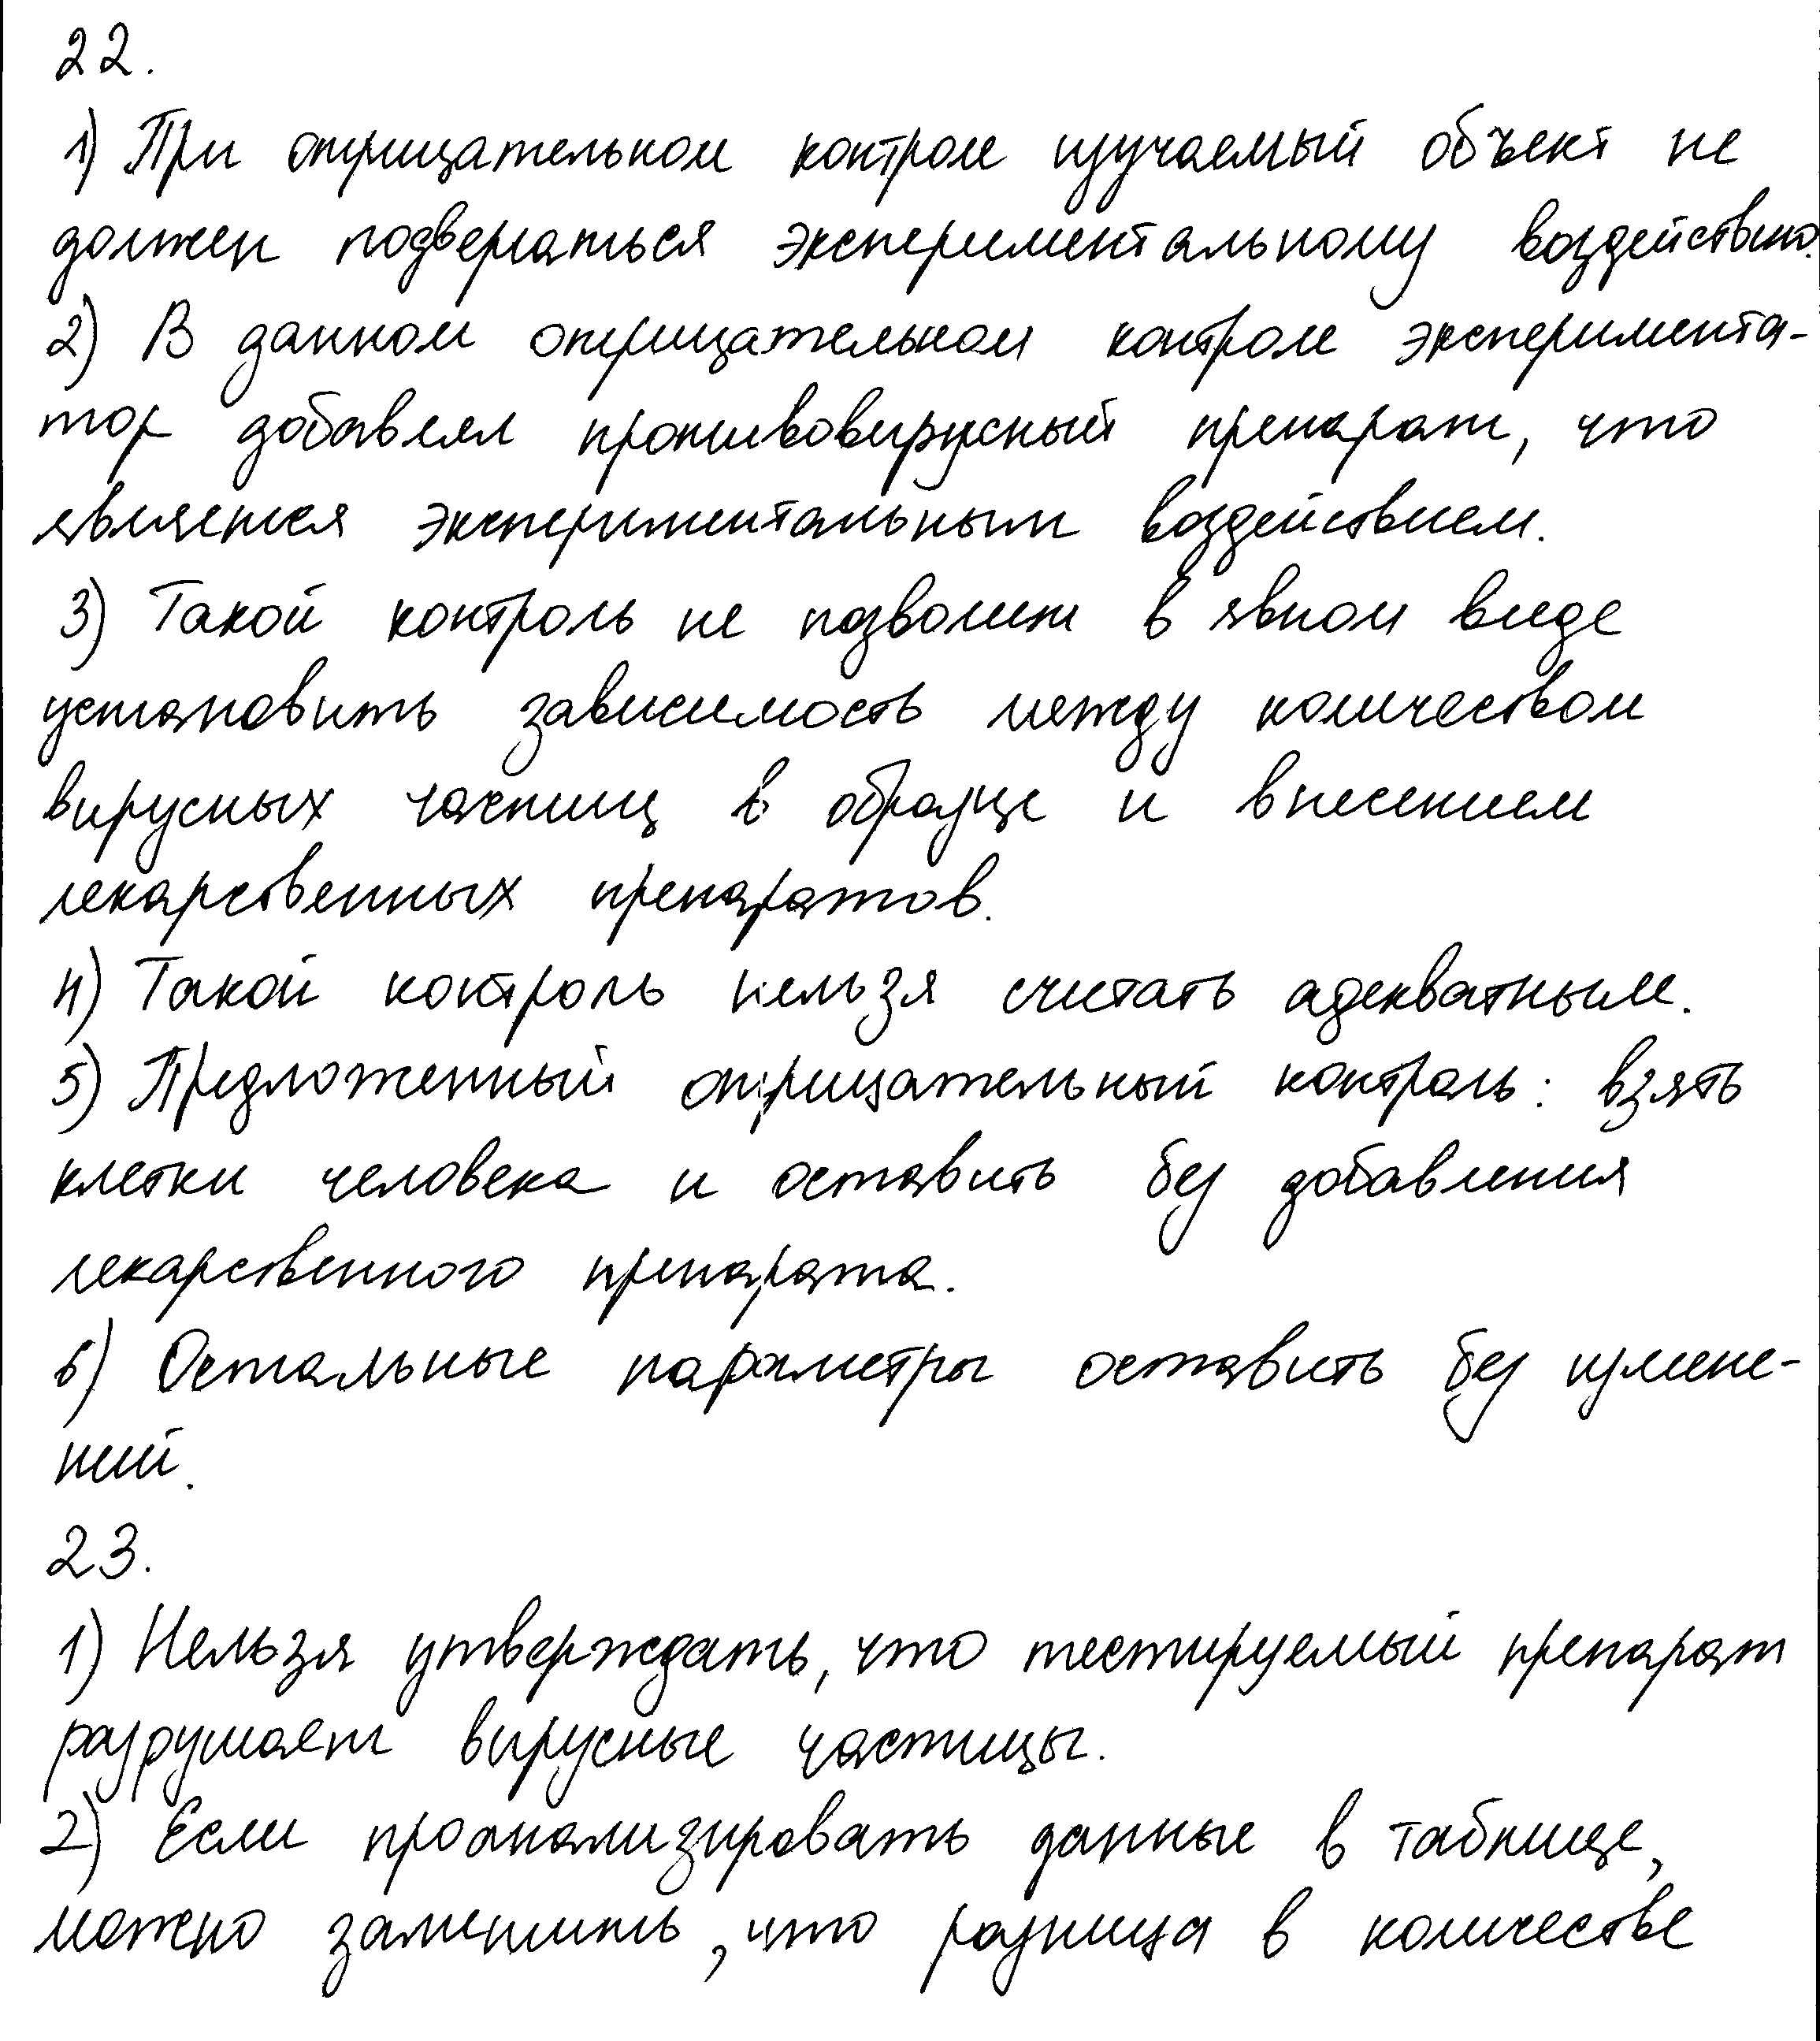 22.
1) При отрицательном контроле изучаемый объект не
должен подвергаться экспериментальному воздействию.
2) В данном отрицательном контроле эксперимента-
тор добавлял противовирусный препарат, что
является экспериментальным воздействием.
3) Такой контроль не позволит в явном виде
установить зависимость между количеством
вирусных частиц в образце и внесением
лекарственных препаратов.
4) Такой контроль нельзя считать адекватным.
5) Предложенный отрицательный контроль: взять
клетки человека и оставить без добавления
лекарственного препарата.
6) Остальные параметры оставить без измене-
ний.
23.
1) Нельзя утверждать, что тестируемый препарат
разрушает вирусные частицы.
2) Если проанализировать данные в таблице,
можно заметить, что разница в количестве